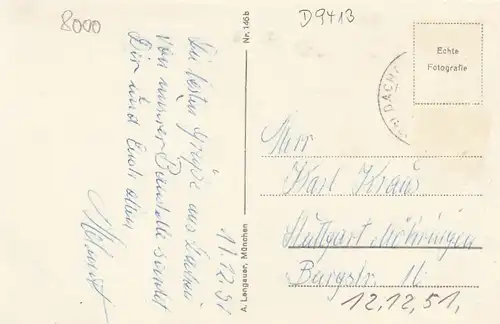 8000
D9413
Nr. 146b
Echte
Fotografie
DACH
11.12.51
Die besten Grüße aus Dachau
von unserer Baustelle sendet
Dir und Euch allen
Helmut
A. Lengauer, München
Herr
Karl Kraus
Stuttgart Möhringen
Burgstr. 16
12.12.51,